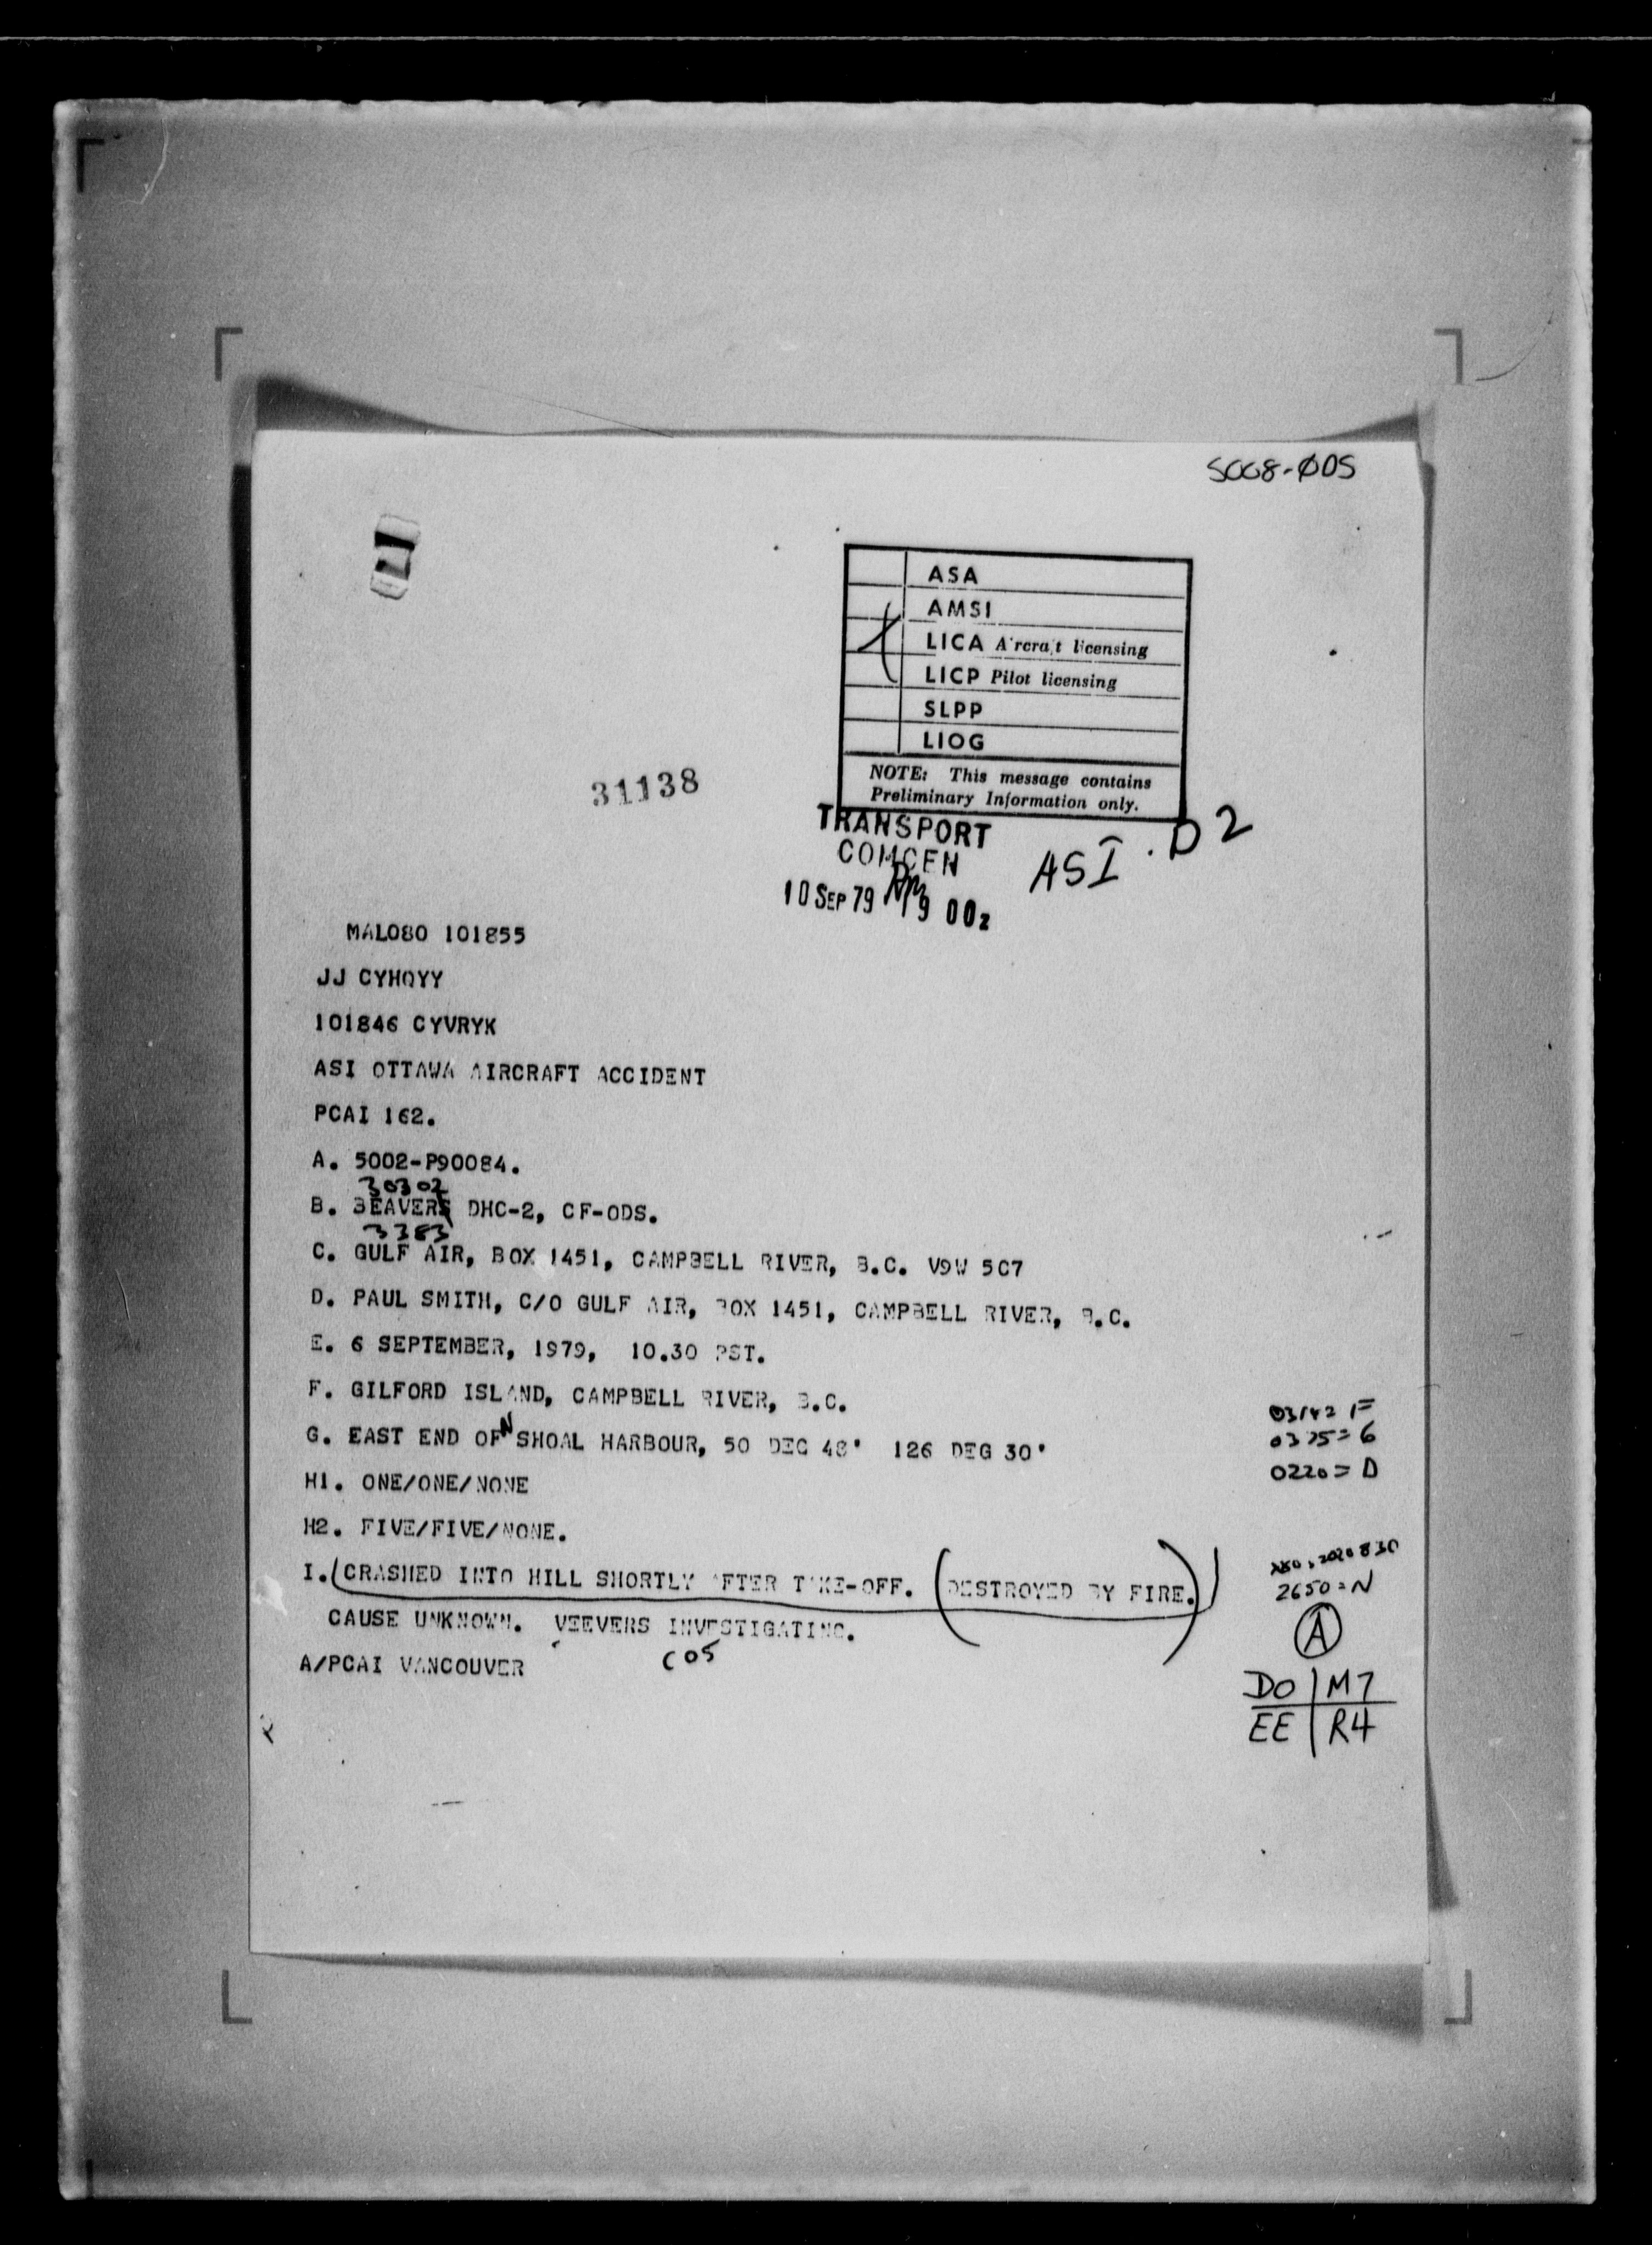 5008-ØDS
ASA
AMSI
LICA Aircraft licensing
LICP Pilot licensing
SLPP
LIOG
NOTE: This message contains
Preliminary Information only.
31138
TRANSPORT
COMCEN
10 SEP 79 19 00z
ASI · D2
MAL080 101855
JJ CYHQYY
101846 CYVRYK
ASI OTTAWA AIRCRAFT ACCIDENT
PCAI 162.
A. 5002-P90084.
30302
B. BEAVERS DHC-2, CF-ODS.
3383
C. GULF AIR, BOX 1451, CAMPBELL RIVER, B.C. V9W 5C7
D. PAUL SMITH, C/O GULF AIR, BOX 1451, CAMPBELL RIVER, B.C.
E. 6 SEPTEMBER, 1979, 10.30 PST.
F. GILFORD ISLAND, CAMPBELL RIVER, B.C.
G. EAST END OF N SHOAL HARBOUR, 50 DEG 48' 126 DEG 30'
H1. ONE/ONE/NONE
H2. FIVE/FIVE/NONE.
I. (CRASHED INTO HILL SHORTLY AFTER TAKE-OFF. (DESTROYED BY FIRE.))
CAUSE UNKNOWN. VEEVERS INVESTIGATING.
C05
A/PCAI VANCOUVER
0220 = D
2650 = N
A
DO M7
EE R4